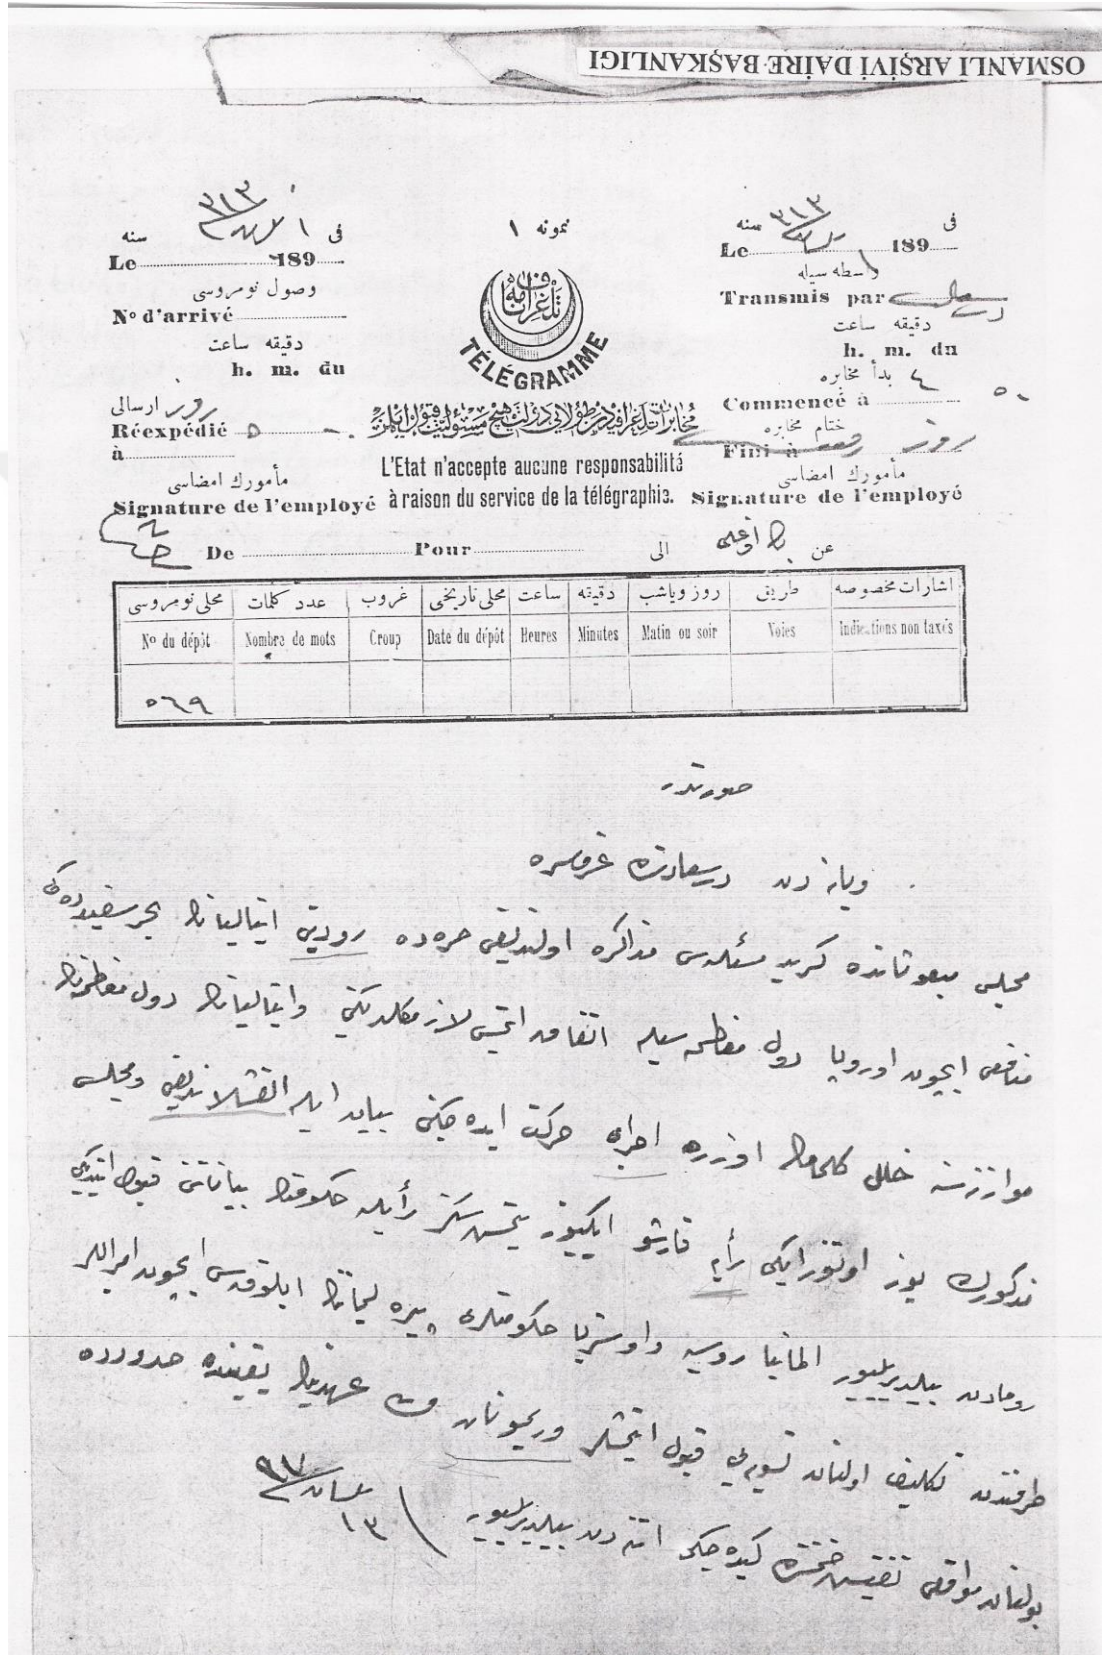 OSMANLI ARŞİVİ DAİRE BAŞKANLIGI
فى ١ ٣١٣ سنه
Le 189
وصول نومروسى
Nº d'arrivé
دقيقه ساعت
h. m. du
روز ارسالى
Réexpédié
à
مأمورك امضاسى
Signature de l'employé
نمونه ١
تلغرافنامه
TÉLÉGRAMME
مخابرات تلغرافيه دن طولايى دولت هيچ مسئوليت قبول ايلمز
L'Etat n'accepte aucune responsabilité
à raison du service de la télégraphie.
فى ٣١٣ سنه
Le 189
واسطه سيله
Transmis par
دقيقه ساعت
h. m. du
بدأ مخابره ٤ ٥٠
Commencé à
ختام مخابره
Fini à
مأمورك امضاسى
Signature de l'employé
De Pour الى عن
اشارات مخصوصه طريق روز وياشب دقيقه ساعت محلى تاريخى غروب عدد كلمات محلى نومروسى
Nº du dépôt Nombre de mots Croup Date du dépôt Heures Minutes Matin ou soir Voies Indications non taxés
٥٦٩
صورتدر
ويانه دن درسعادته
مجلس مبعوثانده كريد مسئله سى مذاكره اولنديغى صره ده روديني ايتاليانك بحر سفيدده كى
منافعى ايچون اوروپا دول معظمه سيله اتفاق ايتمسى لازم كلديكنى وايتاليانك دول معظمه نك
موازنه سنه خلل كلمامك اوزره حركت ايده جكنى بيان ايله القشلانديغى ومجلس
مذكورك يوز اوتوز ايكى رأيه قارشو ايكيوز يتمش سكز رأيله حكومتك بياناتنى قبول ايتديكى
رومادن بيلديريليور المانيا روسيه واوستريا حكومتلرى پيره ليمانك ابلوقه سى ايچون اميراللر
طرفندن تكليف اولنان قبول ايتمشلر يقيننده حدودده
بولنان مواقعى تفتيش ضمننده كيده جكى آتنه دن بيلديريليور ١٣ نيسان ٩٧